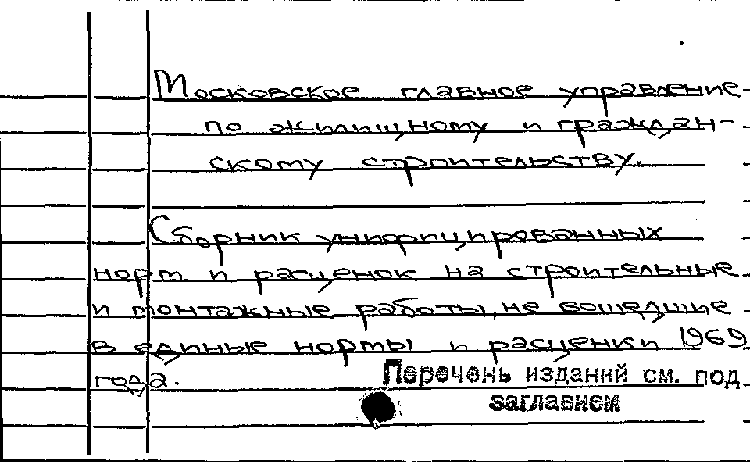 Московское главное управление
по жилищному и граждан-
скому строительству.
Сборник унифицированных
норм и расценок на строительные
и монтажные работы, не вошедшие
в единые нормы и расценки 1969
года.
Перечень изданий см. под
заглавием